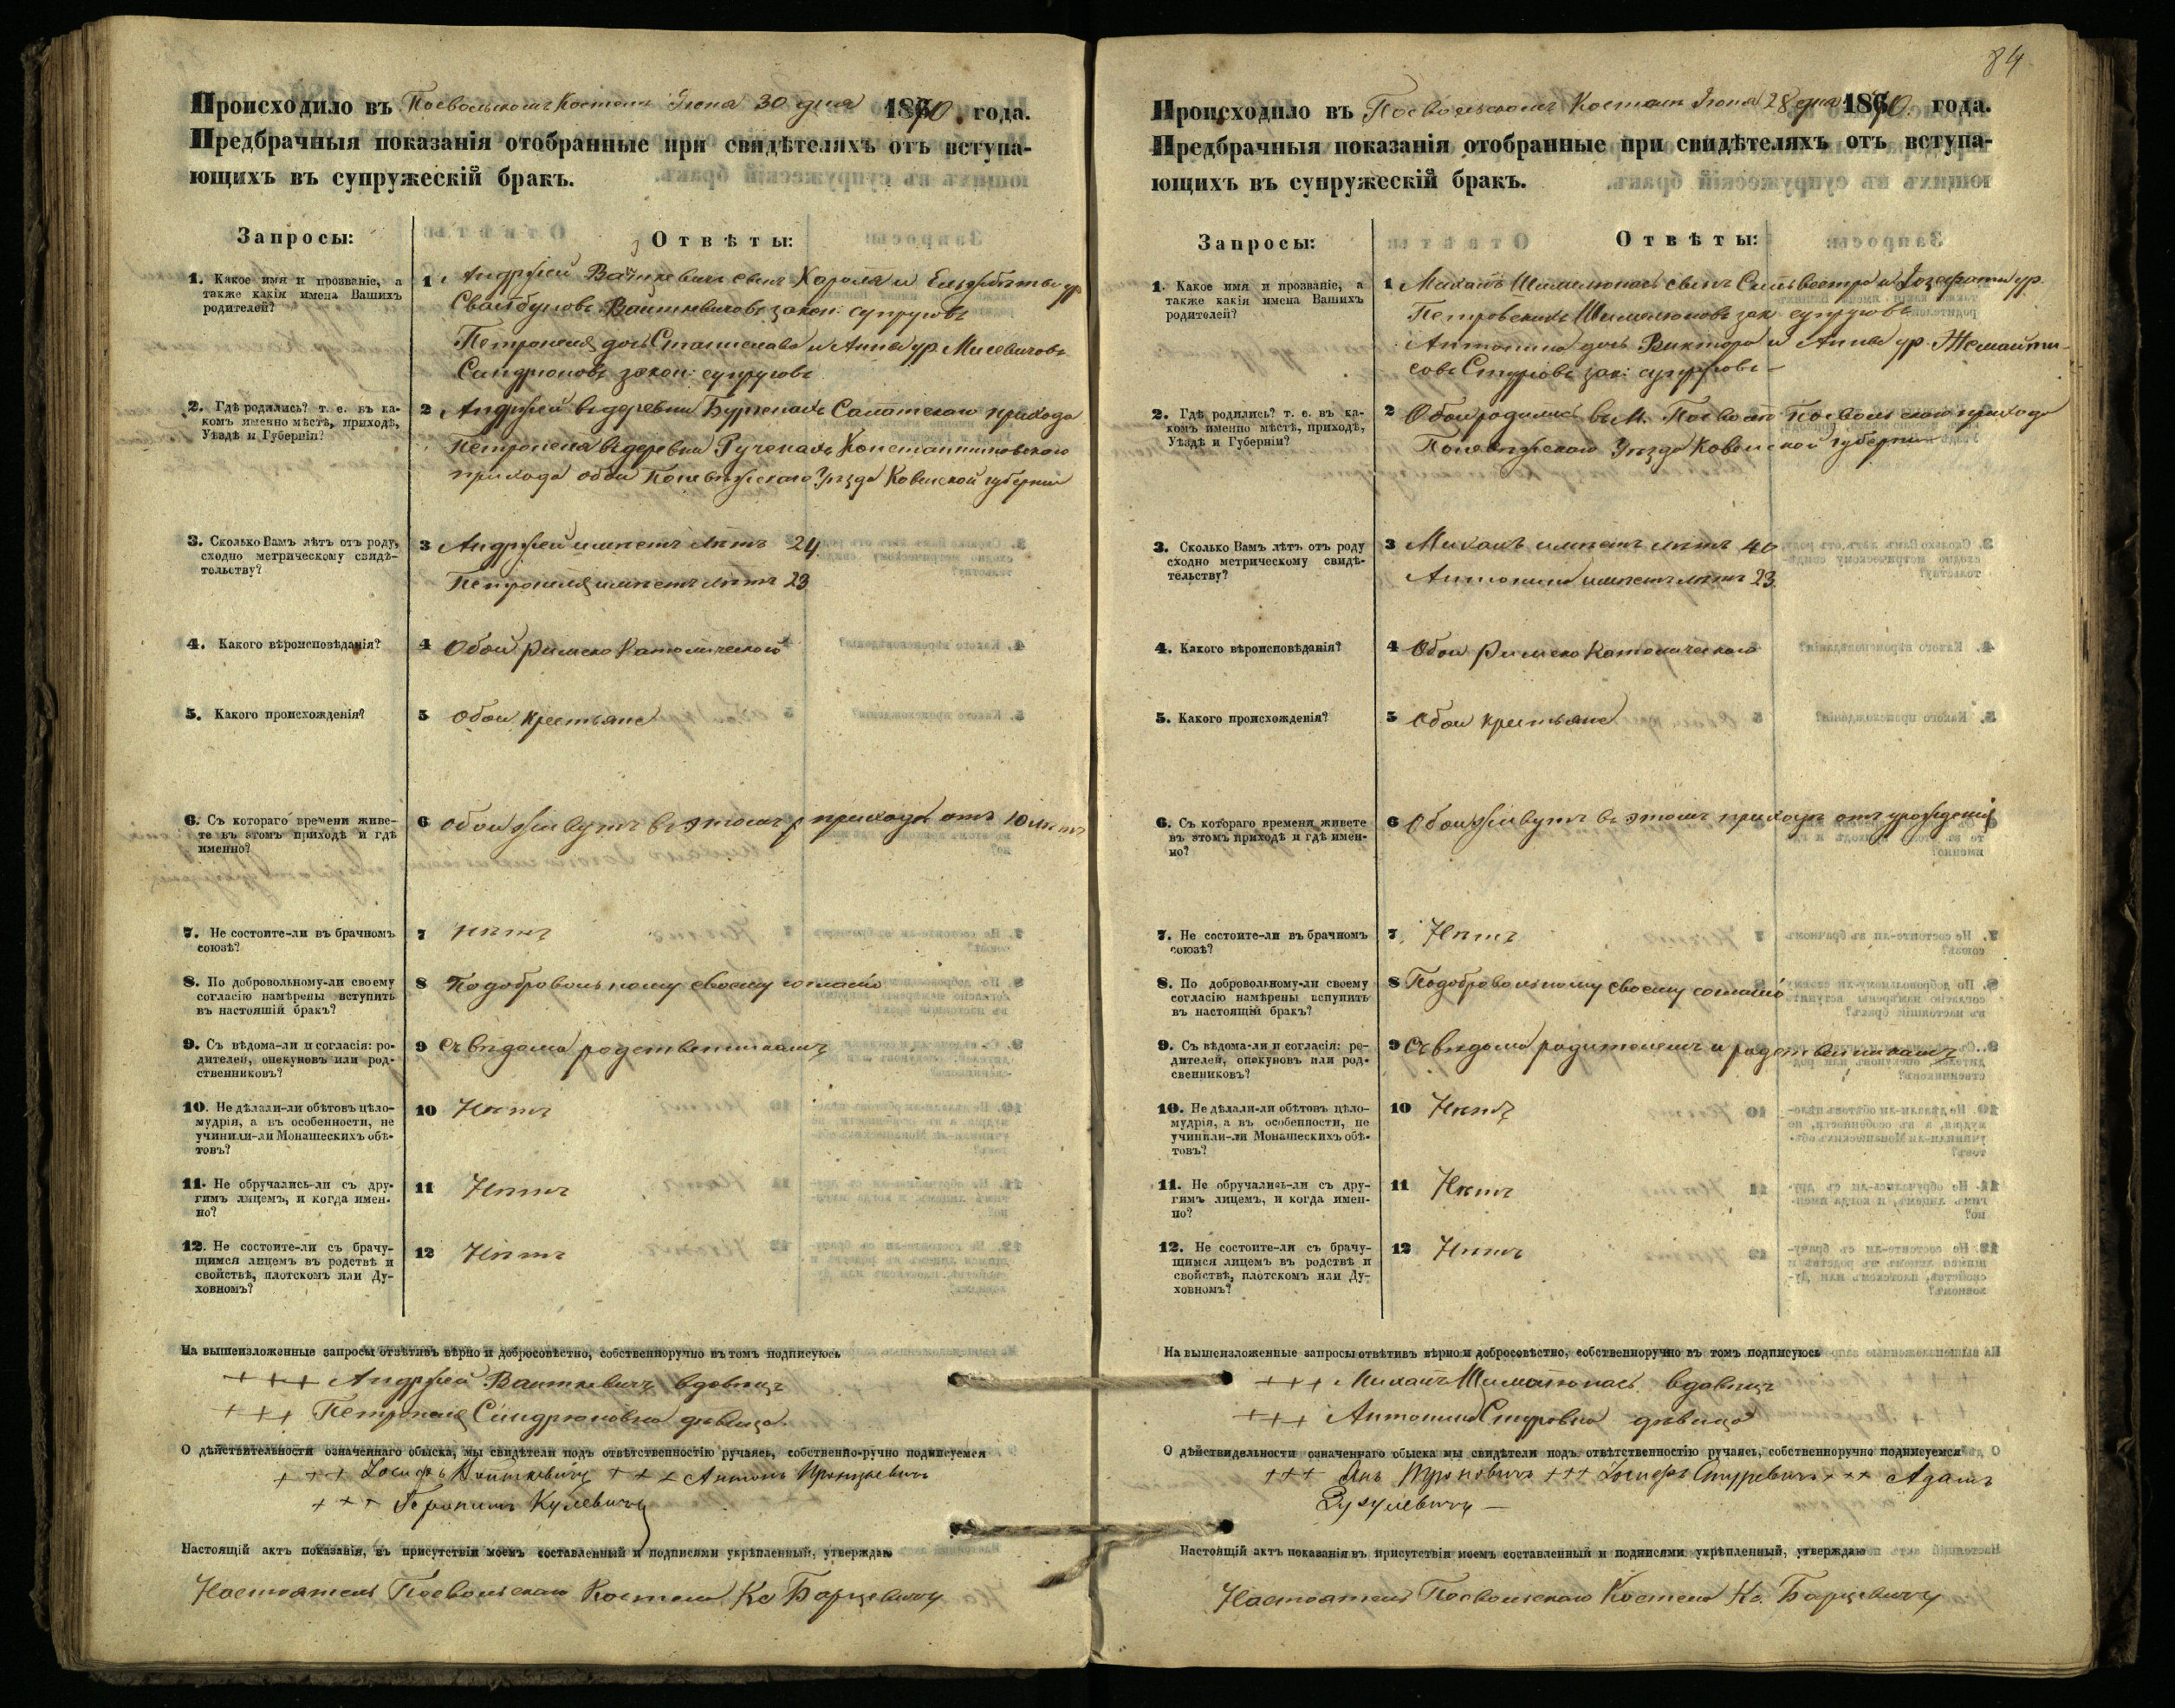 Происходило въ Посвольскомъ Костелѣ Іюня 30 дня 1870 года.
Предбрачныя показанія отобранные при свидѣтеляхъ отъ вступа-
ющихъ въ супружескій бракъ.
Запросы:
Отвѣты:
1. Какое имя и прозваніе, а
также какія имена Вашихъ
родителей?
1 Андржей Вайткевичъ сынъ Кароля и Ельжбеты ур.
Вайткевичовъ закон: супруговъ
Петронеля дочь Станислава и Анны ур. Мисевичовъ
Синдріоновъ закон: супруговъ
2. Гдѣ родились? т. е. въ ка-
комъ именно мѣстѣ, приходѣ,
Уѣздѣ и Губерніи?
2 Андржей въ деревни Салатскаго прихода
Петронеля въ деревни Константиновскаго
прихода обои Поневѣжскаго Уѣзда Ковенской губерніи
3. Сколько Вамъ лѣтъ отъ роду,
сходно метрическому свидѣ-
тельству?
3 Андржей имѣетъ лѣтъ 24
Петронеля имѣетъ лѣтъ 23
4. Какого вѣроисповѣданія?
4 Обои Римско Католическаго
5. Какого происхожденія?
5 Обои крестьяне
6. Съ котораго времени живе-
те въ этомъ приходѣ и гдѣ
именно?
6 Обои живутъ въ этомъ приходѣ отъ 10 лѣтъ
7. Не состоите-ли въ брачномъ
союзѣ?
7 Нѣтъ
8. По добровольному-ли своему
согласію намѣрены вступить
въ настоящій бракъ?
8 По добровольному своему согласію
9. Съ вѣдома-ли и согласія: ро-
дителей, опекуновъ или род-
ственниковъ?
9 Съ вѣдома родственникамъ
10. Не дѣлали-ли обѣтовъ цѣло-
мудрія, а въ особенности, не
учинили-ли Монашескихъ обѣ-
товъ?
10 Нѣтъ
11. Не обручались-ли съ дру-
гимъ лицемъ, и когда имен-
но?
11 Нѣтъ
12. Не состоите-ли съ брачу-
щимся лицемъ въ родствѣ и
свойствѣ, плотскомъ или Ду-
ховномъ?
12 Нѣтъ
На вышеизложенные запросы отвѣтивъ вѣрно и добросовѣстно, собственноручно въ томъ подписуюсь
+++ Андржей Вайткевичъ вдовецъ
+++ Петронеля Синдріоновна дѣвица.
О дѣйствительности означеннаго обыска, мы свидѣтели подъ отвѣтственностію ручаясь, собственно-ручно подписуемся
+++ Іосифъ Вайткевичъ +++ Антонъ
+++ Геронимъ Кулевичъ
Настоящій актъ показанія, въ присутствіи моемъ составленный и подписями укрѣпленный, утверждаю
Настоятель Посвольскаго Костела Кс Барцевичъ
84
Происходило въ Посвольскомъ Костелѣ Іюня 28 дня 1870. года.
Предбрачныя показанія отобранные при свидѣтеляхъ отъ вступа-
ющихъ въ супружескій бракъ.
Запросы:
Отвѣты:
1. Какое имя и прозваніе, а
также какія имена Вашихъ
родителей?
1 Михаилъ Шималюнасъ сынъ Сильвестра и Іозефаты ур.
Петровскихъ Шималюновъ зак: супруговъ
Антонина дочь Виктора и Анны ур. Жемайти-
совъ Стуровъ зак: супруговъ
2. Гдѣ родились? т. е. въ ка-
комъ именно мѣстѣ, приходѣ,
Уѣздѣ и Губерніи?
2 Обои родились въ М. Посволѣ Посвольскаго прихода
Поневѣжскаго Уѣзда Ковенской губерніи
3. Сколько Вамъ лѣтъ отъ роду
сходно метрическому свидѣ-
тельству?
3 Михаилъ имѣетъ лѣтъ 40
Антонина имѣетъ лѣтъ 23
4. Какого вѣроисповѣданія?
4 Обои Римско Католическаго
5. Какого происхожденія?
5 Обои крестьяне
6. Съ котораго времени живете
въ этомъ приходѣ и гдѣ имен-
но?
6 Обои живутъ въ этомъ приходѣ отъ урожденія
7. Не состоите-ли въ брачномъ
союзѣ?
7 Нѣтъ
8. По добровольному-ли своему
согласію намѣрены вспупить
въ настоящій бракъ?
8 По добровольному своему согласію
9. Съ вѣдома-ли и согласія: ро-
дителей, опекуновъ или род-
свенниковъ?
9 Съ вѣдома родителемъ и родственникамъ
10. Не дѣлали-ли обѣтовъ цѣло-
мудрія, а въ особенности, не
учинили-ли Монашескихъ обѣ-
товъ?
10 Нѣтъ
11. Не обручались-ли съ дру-
гимъ лицемъ, и когда имен-
но?
11 Нѣтъ
12. Не состоите-ли съ брачу-
щимся лицемъ въ родствѣ и
свойствѣ, плотскомъ или Ду-
ховномъ?
12 Нѣтъ
На вышеизложенные запросы отвѣтивъ вѣрно и добросовѣстно, собственноручно въ томъ подписуюсь
+++ Михаилъ Шималюнасъ вдовецъ
+++ Антонина Стуровна дѣвица
О дѣйствидельности означеннаго обыска мы свидѣтели подъ отвѣтственностію ручаясь, собственноручно подписуемся
+++ Янъ +++ Іосифъ Стуревичъ +++ Адамъ
Настоящій актъ показанія въ присутствіи моемъ составленный и подписями укрѣпленный, утверждаю
Настоятель Посвольскаго Костела Кс. Барцевичъ